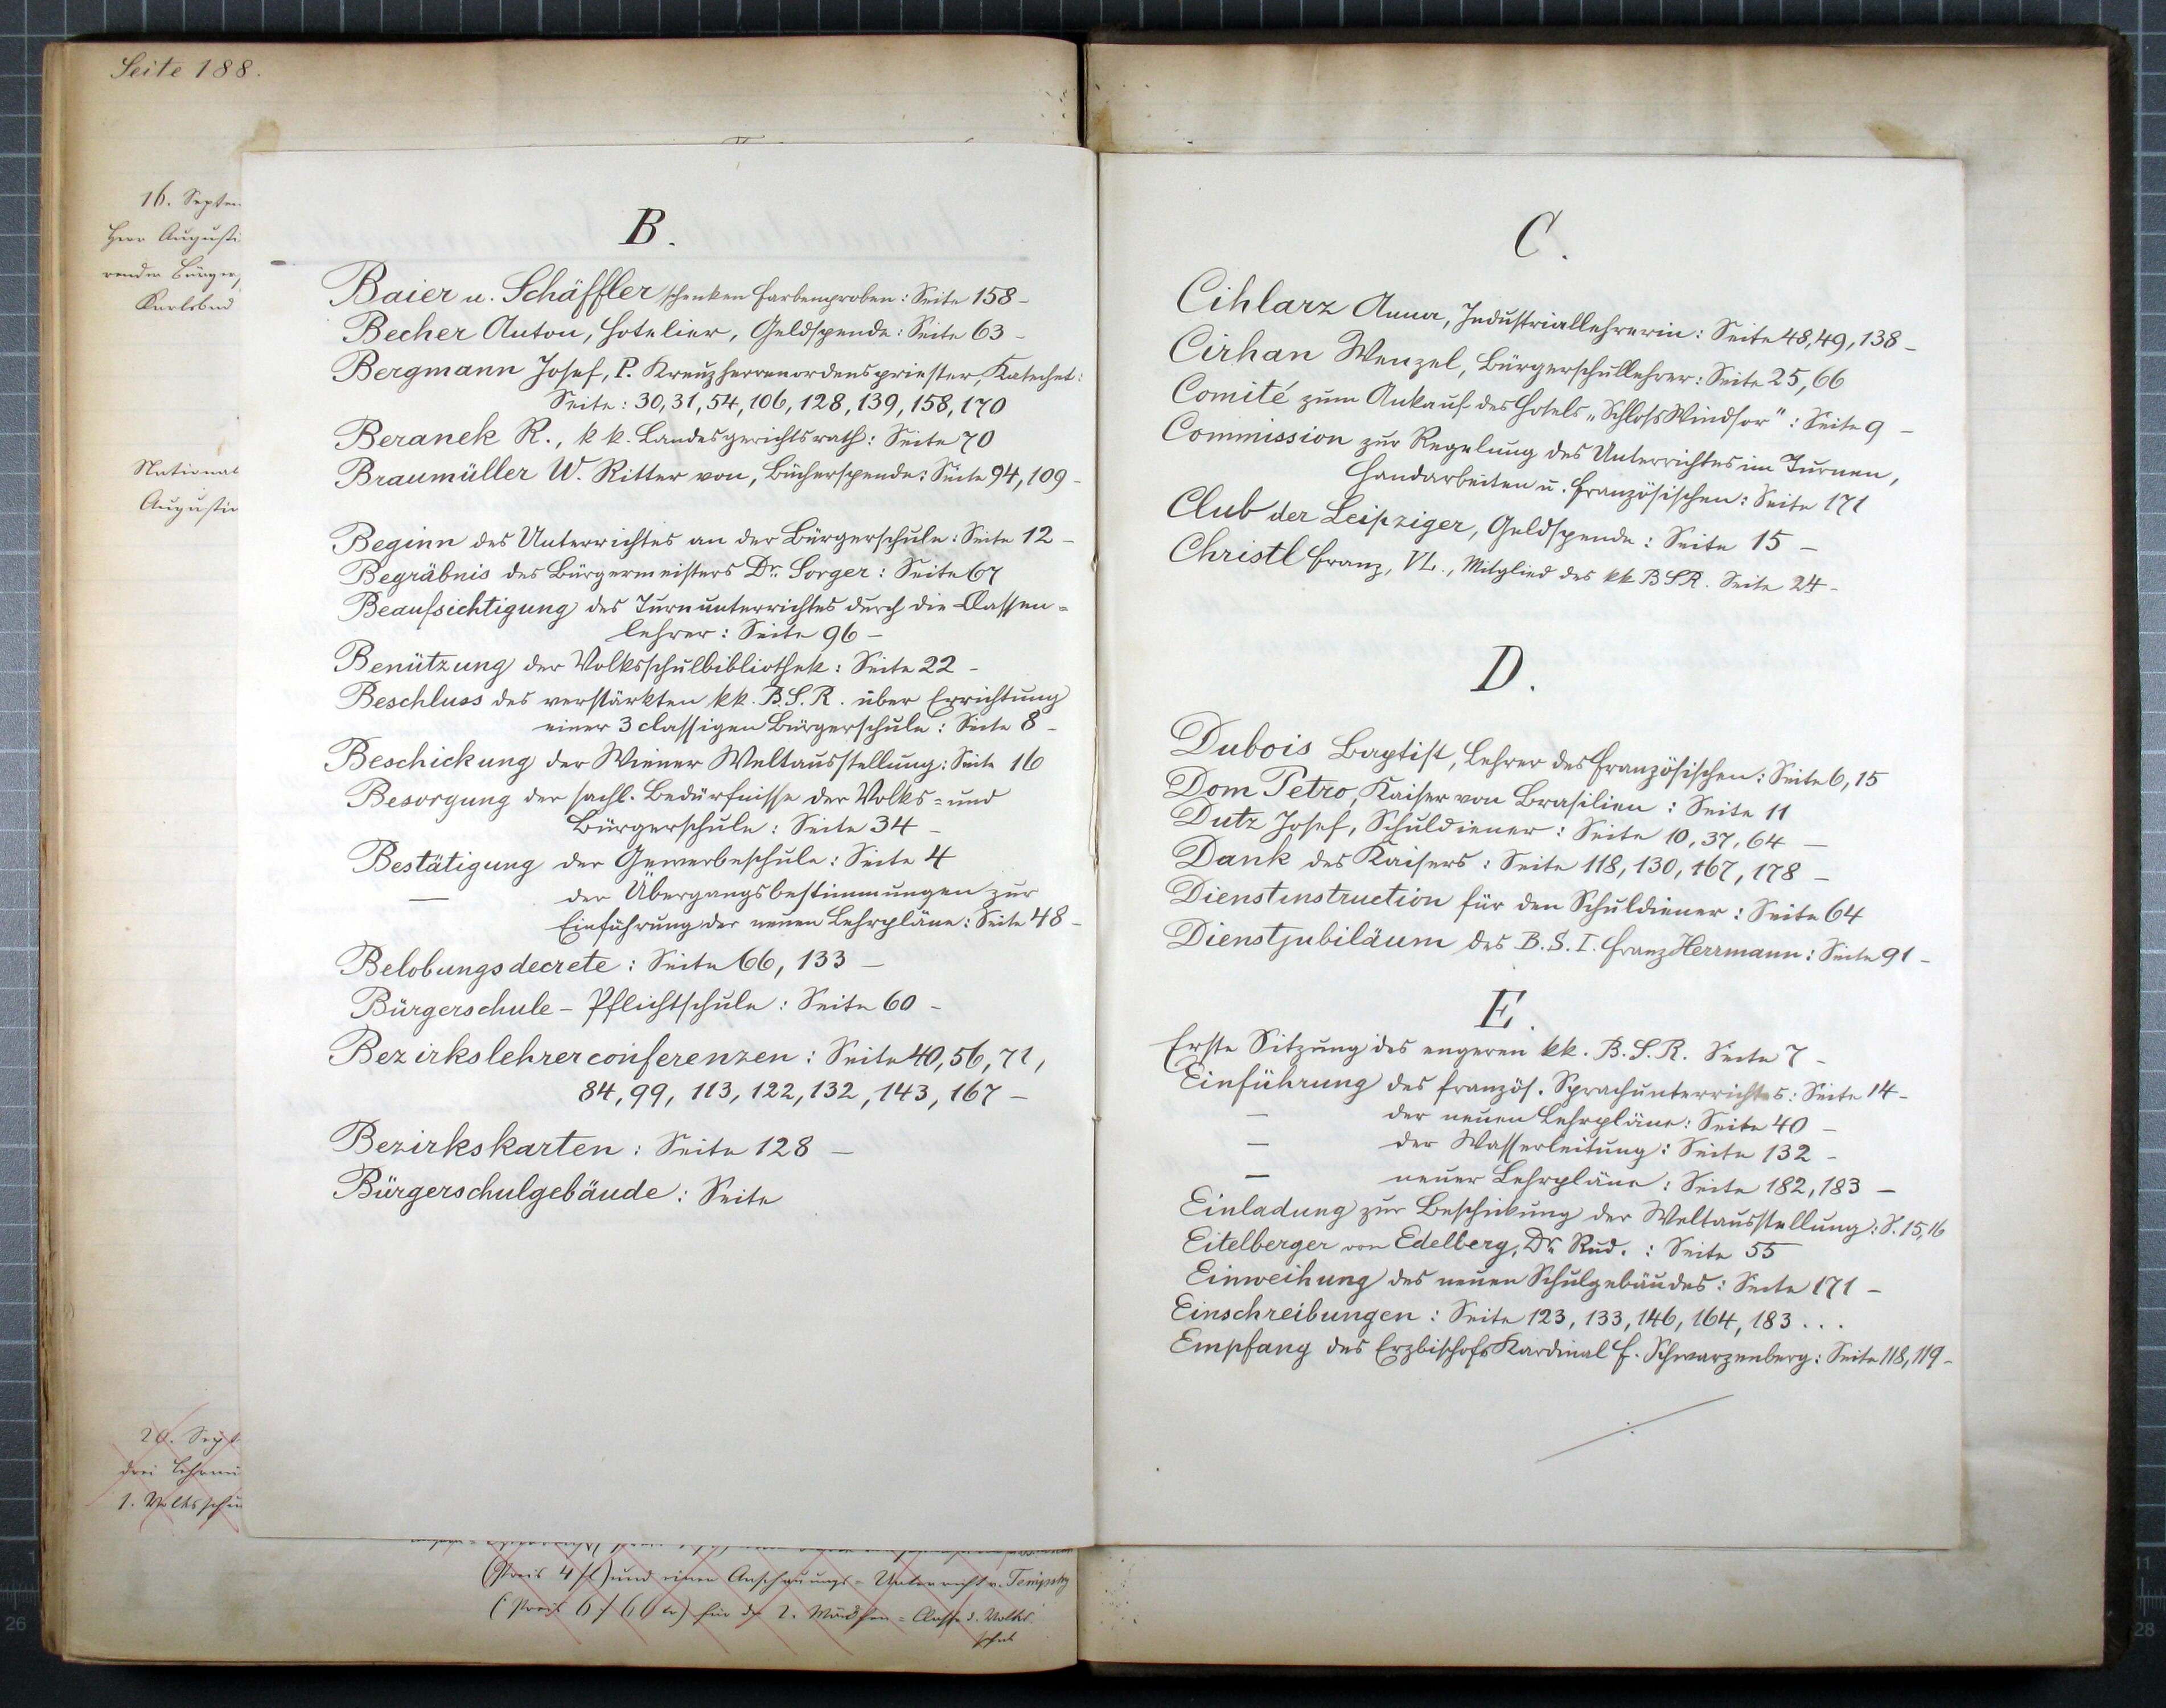 Seite 188.
16. Septem
Herr Augusti
render Bürger
Karlsbad
National
Augustin
B.
Baier u. Schäffler schenken Farbenproben: Seite 158 -
Becher Anton, Hotelier, Geldspende: Seite 63 -
Bergmann Josef, P. Kreuzherrenordenspriester, Katechet:
Seite: 30, 31, 54, 106, 128, 139, 158, 170
Beranek R., k k. Landesgerichtsrath: Seite 70
Braumüller W. Ritter von, Bücherspende: Seite 94, 109 -
Beginn des Unterrichtes an der Bürgerschule: Seite 12 -
Begräbnis des Bürgermeisters Dr. Sorger: Seite 67
Beaufsichtigung des Turnunterrichtes durch die Classen=
lehrer: Seite 96 -
Benützung der Volksschulbibliothek: Seite 22 -
Beschluss des verstärkten kk. B.S.R. über Errichtung
einer 3 classigen Bürgerschule: Seite 8 -
Beschickung der Wiener Weltausstellung: Seite 16
Besorgung der sachl. Bedürfnisse der Volks= und
Bürgerschule: Seite 34 -
Bestätigung der Gewerbeschule: Seite 4
— der Übergangsbestimmungen zur
Einführung der neuen Lehrpläne: Seite 48 -
Belobungsdecrete: Seite 66, 133 -
Bürgerschule - Pflichtschule: Seite 60 -
Bezirkslehrerconferenzen: Seite 40, 56, 71,
84, 99, 113, 122, 132, 143, 167 -
Bezirkskarten: Seite 128 -
Bürgerschulgebäude: Seite
20. Sept
drei Lehrmi
1. Volksschu
(Preis 4 fl) und einen Anschauungs=Unterricht v. Tempsky
für die 2. Mädchen=Classe d. Volks
schul
C.
Cihlarz Anna, Industriallehrerin: Seite 48, 49, 138 -
Cirhan Wenzel, Bürgerschullehrer: Seite 25, 66
Comité zum Ankauf des Hotels „Schloss Windsor": Seite 9 -
Commission zur Regelung des Unterrichtes im Turnen,
Handarbeiten u. Französischen: Seite 171
Club der Leipziger, Geldspende: Seite 15 -
Christl Franz, VL., Mitglied des kk B S R. Seite 24 -
D.
Dubois Baptist, Lehrer des Französischen: Seite 6, 15
Dom Petro, Kaiser von Brasilien: Seite 11
Dutz Josef, Schuldiener: Seite 10, 37, 64 -
Dank des Kaisers: Seite 118, 130, 167, 178 -
Dienstinstruction für den Schuldiener: Seite 64
Dienstjubiläum des B. S. I. Franz Herrmann: Seite 91 -
E.
Erste Sitzung des engeren kk. B. S. R. Seite 7 -
Einführung des französ. Sprachunterrichtes: Seite 14 -
— der neuen Lehrpläne: Seite 40 -
— der Wasserleitung: Seite 132 -
— neuer Lehrpläne: Seite 182, 183 -
Einladung zur Beschickung der Weltausstellung: S. 15, 16
Eitelberger von Edelberg, Dr. Rud.: Seite 55
Einweihung des neuen Schulgebäudes: Seite 171 -
Einschreibungen: Seite 123, 133, 146, 164, 183 . . .
Empfang des Erzbischofs Kardinal F. Schwarzenberg: Seite 118, 119 -